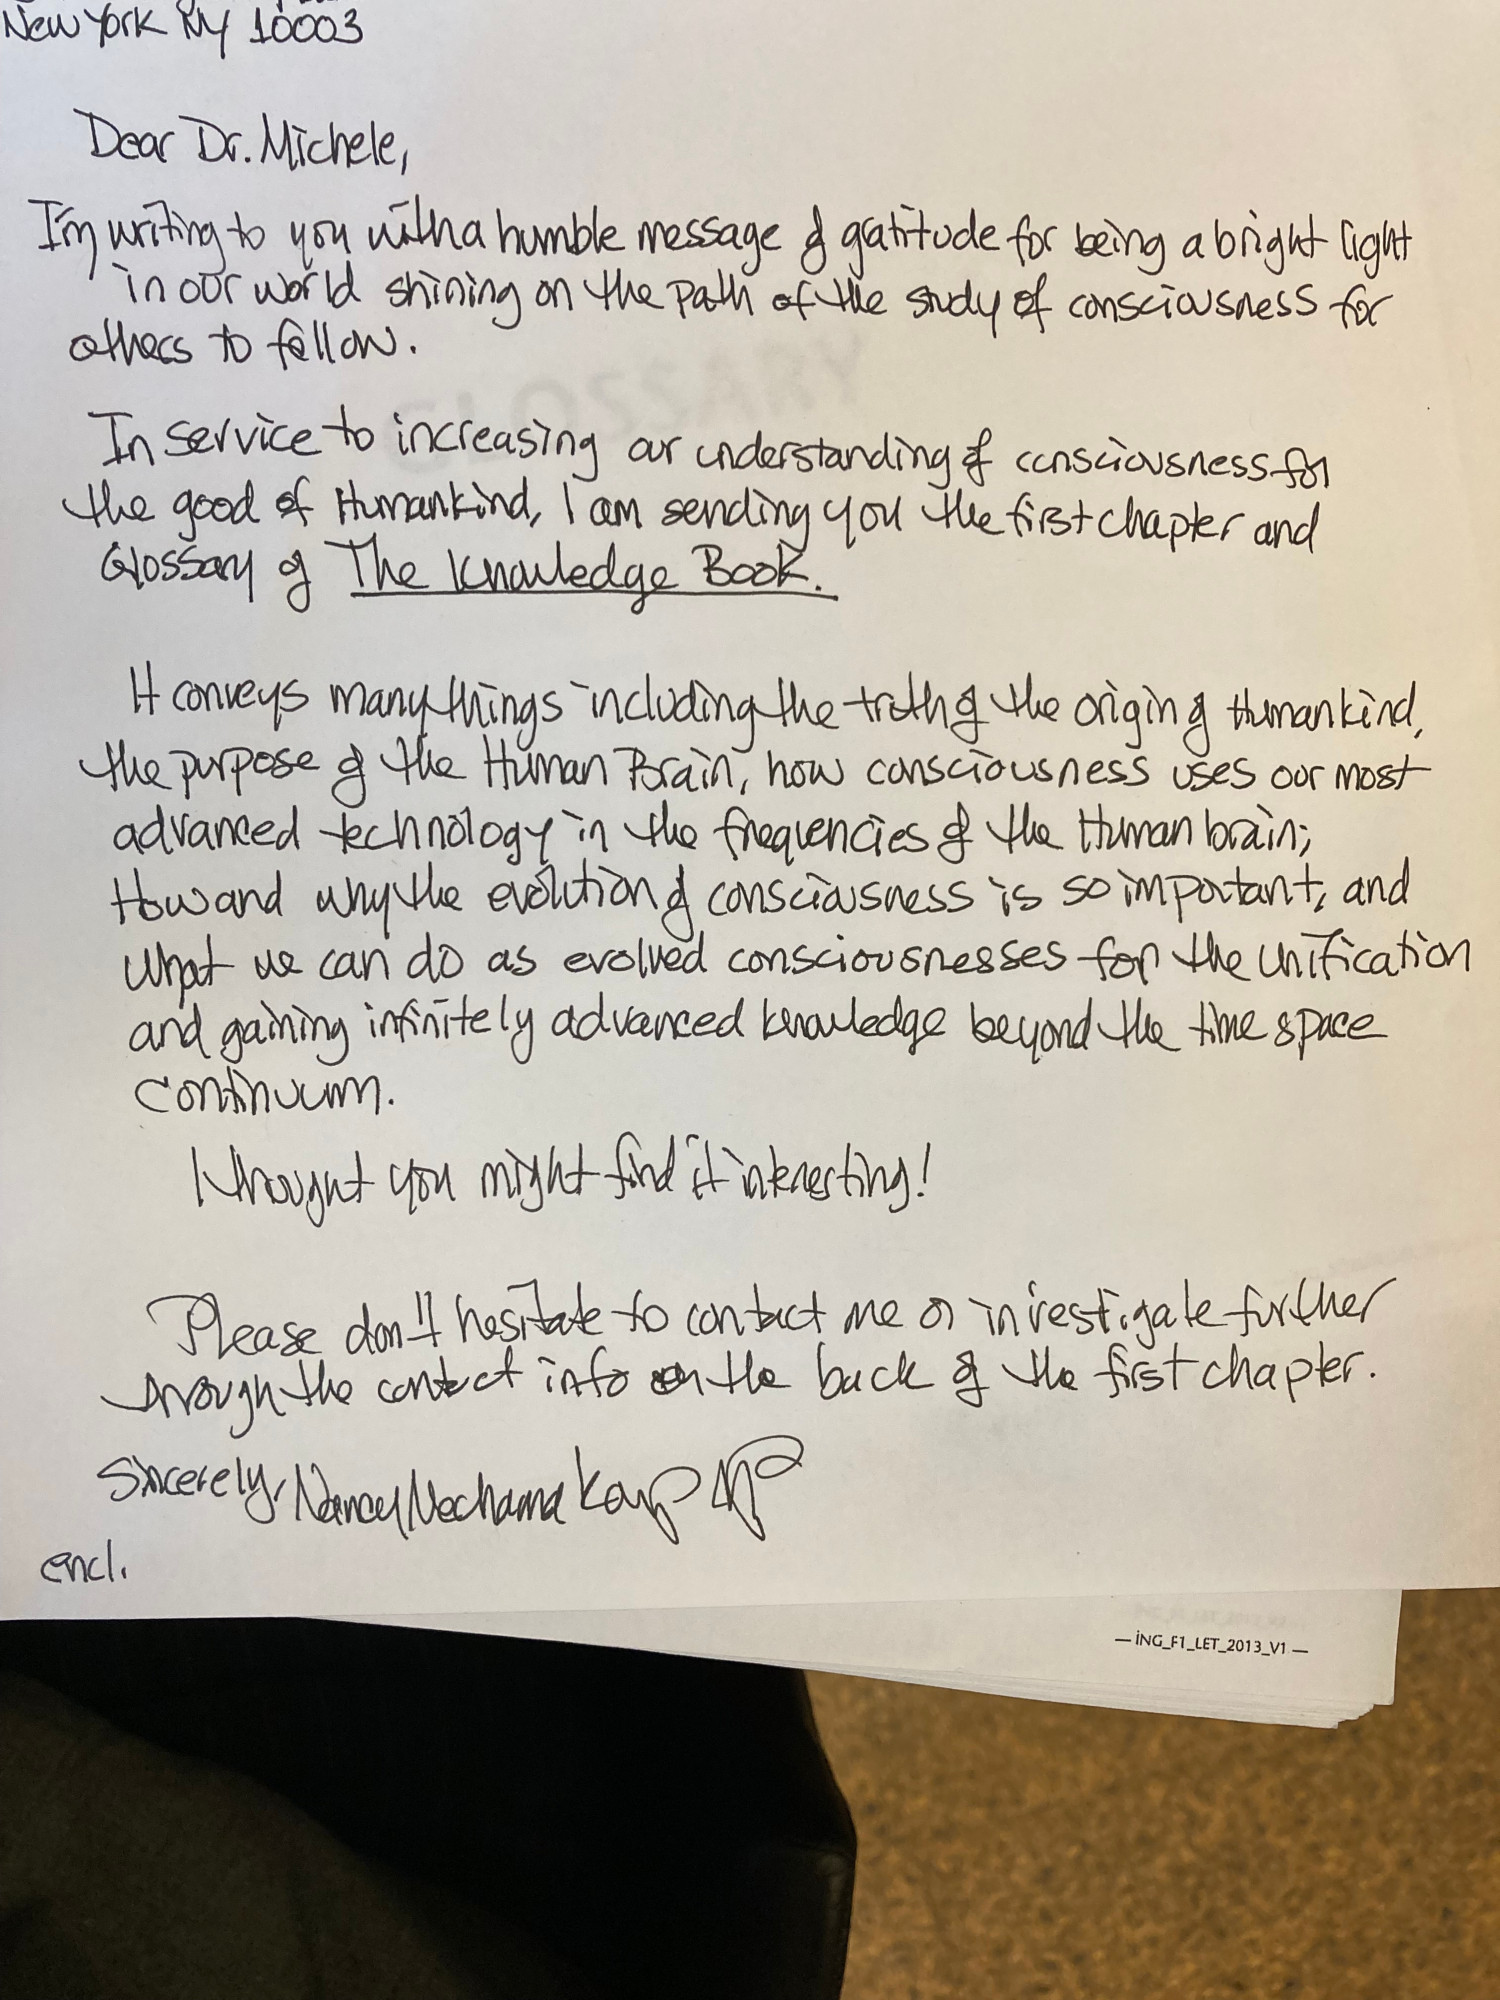 New York NY 10003
Dear Dr. Michele,
I'm writing to you with a humble message of gratitude for being a bright light
in our world shining on the path of the study of consciousness for
others to follow.
In service to increasing our understanding of consciousness for
the good of Humankind, I am sending you the first chapter and
Glossary of The Knowledge Book.
It conveys many things including the truth of the origin of Humankind,
the purpose of the Human Brain, how consciousness uses our most
advanced technology in the frequencies of the Human brain;
How and why the evolution of consciousness is so important, and
what we can do as evolved consciousnesses for the unification
and gaining infinitely advanced knowledge beyond the time space
continuum.
I thought you might find it interesting!
Please don't hesitate to contact me or investigate further
through the contact info on the back of the first chapter.
Sincerely, Nancy Nechama
encl.
— İNG_F1_LET_2013_V1 —
GLOSSARY